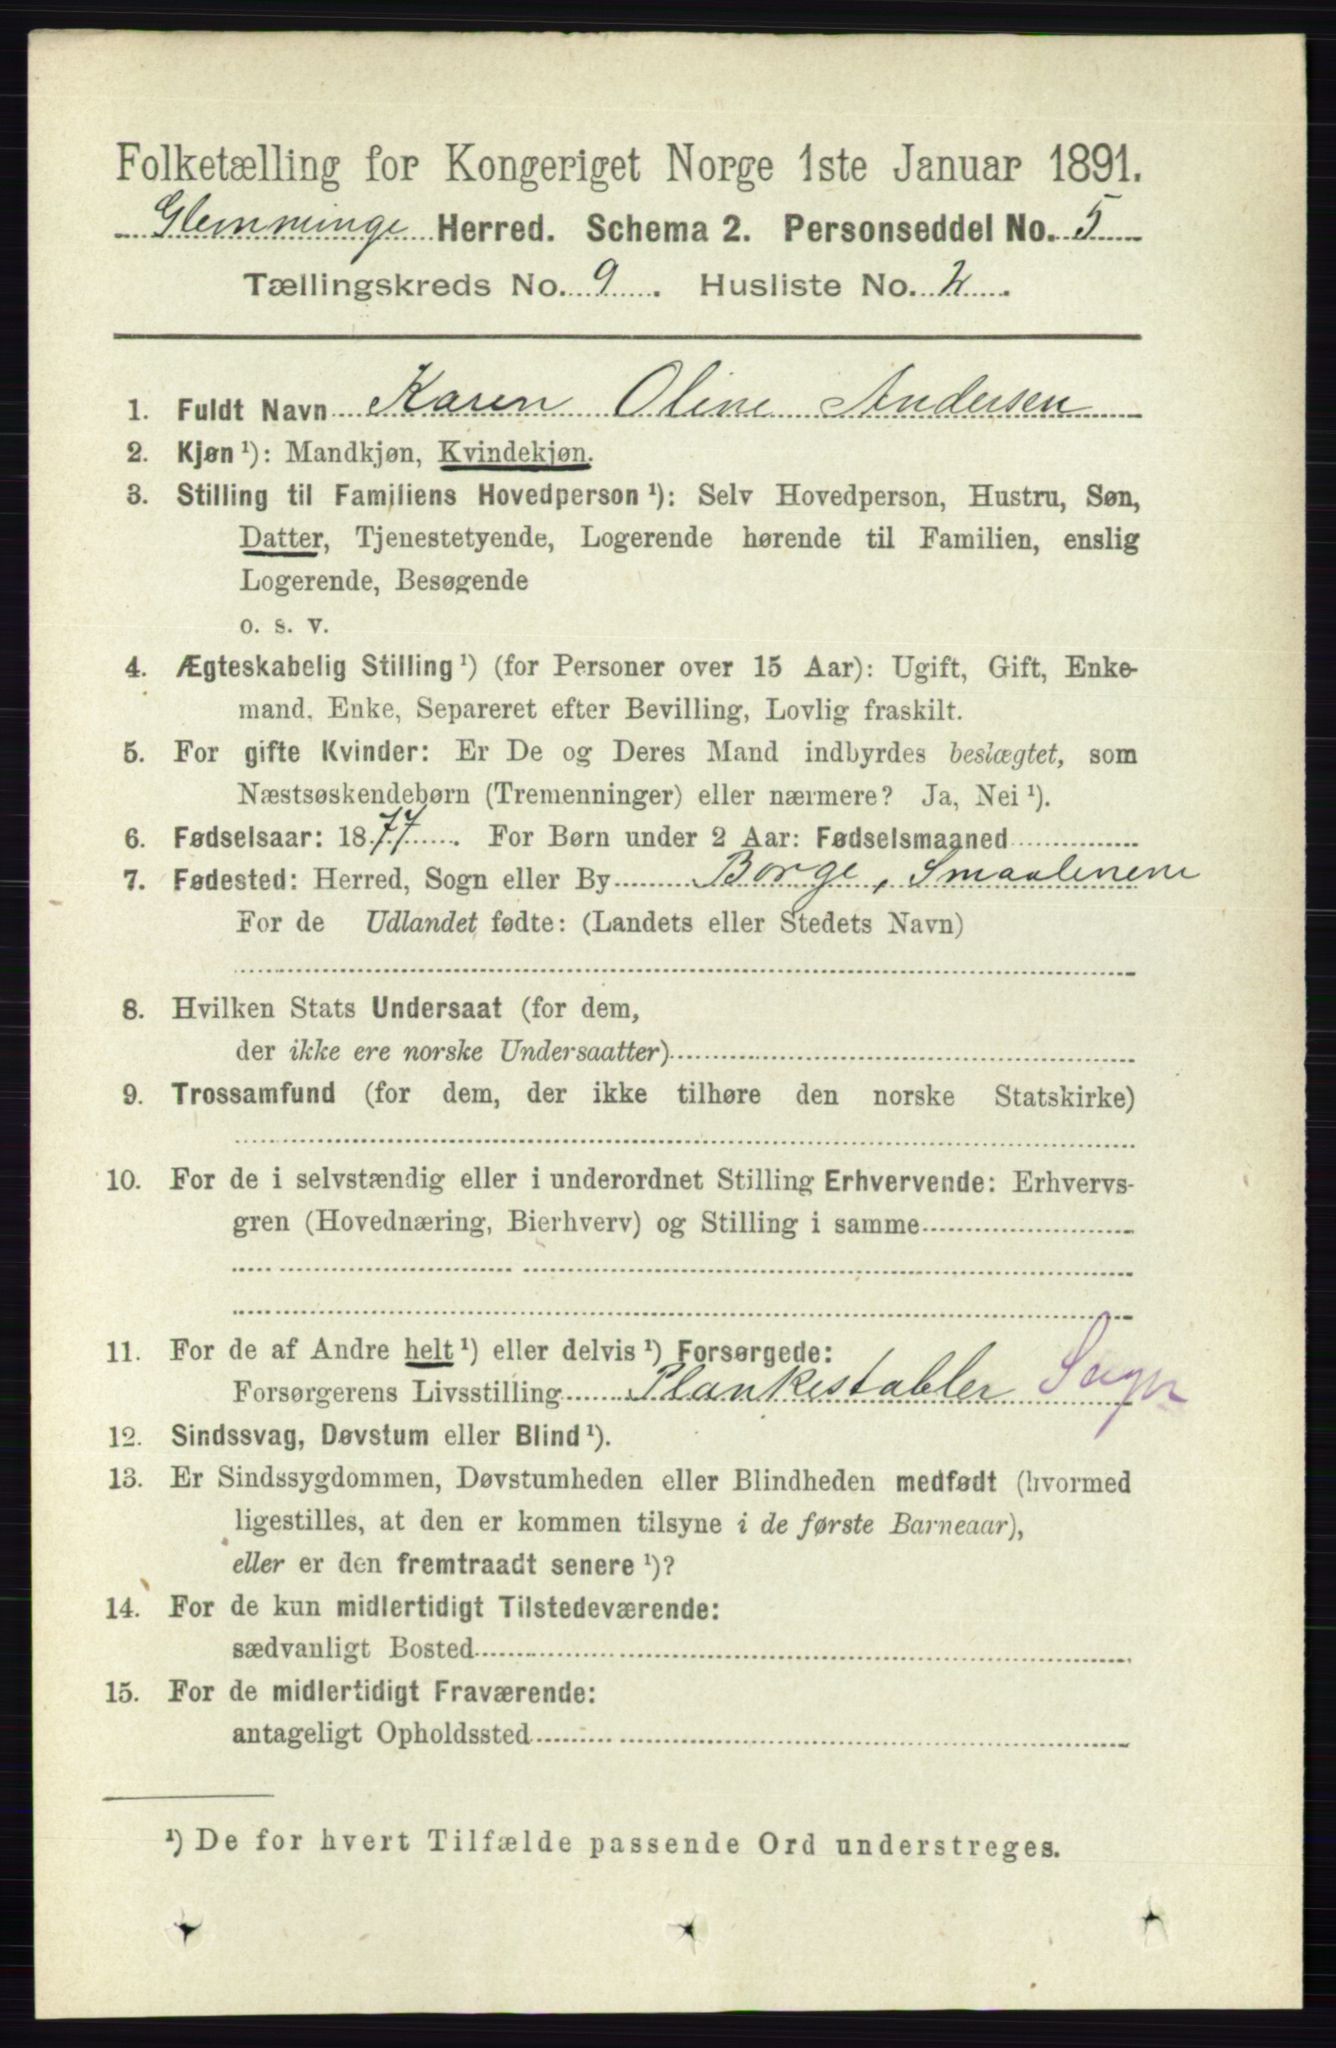 Folketælling for Kongeriget Norge 1ste Januar 1891.
Glemminge Herred. Schema 2. Personseddel No. 5
Tællingskreds No. 9. Husliste No. 2.
1. Fuldt Navn Karen Oline Andersen
2. Kjøn ¹): Mandkjøn, Kvindekjøn.
3. Stilling til Familiens Hovedperson ¹): Selv Hovedperson, Hustru, Søn,
Datter, Tjenestetyende, Logerende hørende til Familien, enslig
Logerende, Besøgende
o. s. v.
4. Ægteskabelig Stilling ¹) (for Personer over 15 Aar): Ugift, Gift, Enke-
mand, Enke, Separeret efter Bevilling, Lovlig fraskilt.
5. For gifte Kvinder: Er De og Deres Mand indbyrdes beslægtet, som
Næstsøskendebørn (Tremenninger) eller nærmere? Ja, Nei ¹).
6. Fødselsaar: 1877. For Børn under 2 Aar: Fødselsmaaned
7. Fødested: Herred, Sogn eller By Borge, Smaalenene
For de Udlandet fødte: (Landets eller Stedets Navn)
8. Hvilken Stats Undersaat (for dem,
der ikke ere norske Undersaatter)
9. Trossamfund (for dem, der ikke tilhøre den norske Statskirke)
10. For de i selvstændig eller i underordnet Stilling Erhvervende: Erhvervs-
gren (Hovednæring, Bierhverv) og Stilling i samme
11. For de af Andre helt ¹) eller delvis ¹) Forsørgede:
Forsørgerens Livsstilling Plankestabler
12. Sindssvag, Døvstum eller Blind ¹).
13. Er Sindssygdommen, Døvstumheden eller Blindheden medfødt (hvormed
ligestilles, at den er kommen tilsyne i de første Barneaar),
eller er den fremtraadt senere ¹)?
14. For de kun midlertidigt Tilstedeværende:
sædvanligt Bosted
15. For de midlertidigt Fraværende:
antageligt Opholdssted
¹) De for hvert Tilfælde passende Ord understreges.